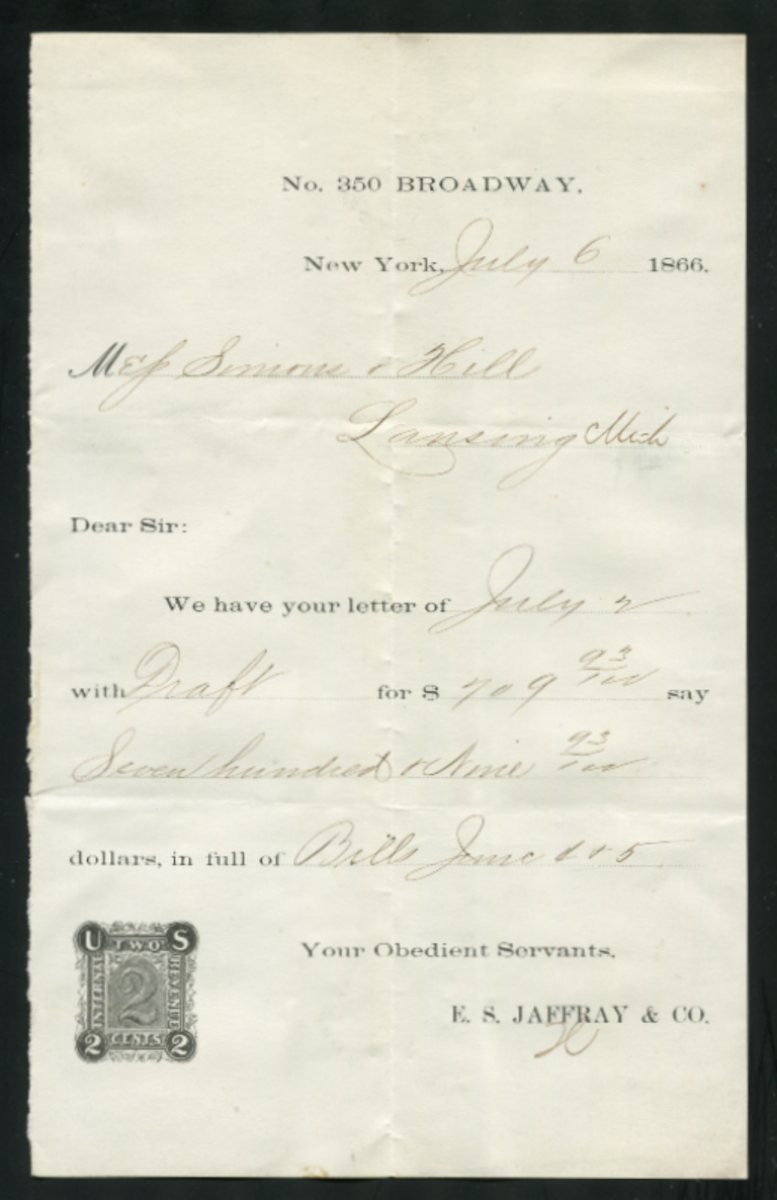 No. 350 BROADWAY.
New York, July 6 1866.
Mess Simons & Hill
Lansing Mich
Dear Sir:
We have your letter of July 2
with Draft for $ 709 93/100 say
Seven hundred & Nine 93/100
dollars, in full of Bills June 1 & 5
Your Obedient Servants,
E. S. JAFFRAY & CO.
U TWO S
INTERNAL REVENUE
2
2 CENTS 2